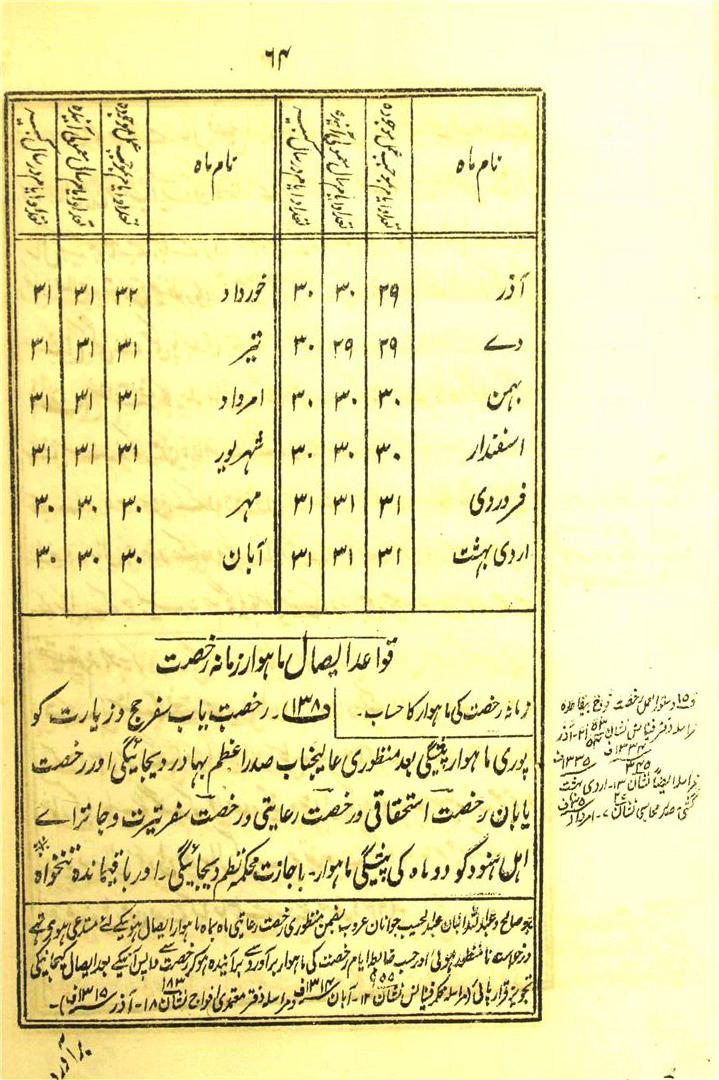 ۶۴
نام ماہ | تعداد ایام بموجب عمل موجودہ | تعداد ایام سال معمولی آیندہ | تعداد ایام در سال کبیسہ | نام ماہ | تعداد ایام بموجب عمل موجودہ | تعداد ایام سال معمولی آیندہ | تعداد ایام در سال کبیسہ
آذر | ۲۹ | ۳۰ | ۳۰ | خورداد | ۳۲ | ۳۱ | ۳۱
دے | ۲۹ | ۲۹ | ۳۰ | تیر | ۳۱ | ۳۱ | ۳۱
بہمن | ۳۰ | ۳۰ | ۳۰ | امرداد | ۳۱ | ۳۱ | ۳۱
اسفندار | ۳۰ | ۳۰ | ۳۰ | شہریور | ۳۱ | ۳۱ | ۳۱
فروردی | ۳۱ | ۳۱ | ۳۱ | مہر | ۳۰ | ۳۰ | ۳۰
اردی بہشت | ۳۱ | ۳۱ | ۳۱ | آبان | ۳۰ | ۳۰ | ۳۰
قواعد ایصال ماہوار زمانہ رخصت
زمانہ رخصت کی ماہوار کا حساب۔ (۱۳۸)۔ رخصت یاب سفر حج و زیارت کو
پوری ماہوار پیشگی بعد منظوری عالیجناب صدر اعظم بہادر دیجائیگی اور رخصت
یابان رخصت استحقاقی و رخصت رعایتی و رخصت سفر تیرت و جاترائے
اہل ہنود کو دو ماہ کی پیشگی ماہوار۔ باجازت محکمہ نظم دیجائیگی۔ اور باقیماندہ تنخواہ
صالح و عبداللہ ابنان عبدالحبیب جوانان عروب بضمن منظوری رخصت رعایتی ماہ بماہ ماہوار ایصال ہونیکے لئے مستدعی ہوئے تھے
درخواست نامنظور ہوئی اور حسب ضابطہ ایام رخصت کی ماہوار برآورد سے برآیندہ ہوکر رخصت سے واپس آنیکے بعد ایصال کیجانیکی
تجویز قرار پائی (مراسلہ محکمہ فینانس نشان ۱۲۔ آبان ۱۳۱۴ف و مراسلہ دفتر معتمدی افواج نشان ۱۸۔ آذر ۱۳۱۵ف)۔
دستور العمل رخصت فوج بیقاعدہ
مراسلہ دفتر فینانس نشان ۲۱۔ آذر
۱۳۳۴ف
۱۳۳۵ف
مراسلہ ایضاً نشان ۱۳۔ اردی بہشت
گشتی صدر محاسبی نشان ۷۔ امرداد
برآورد